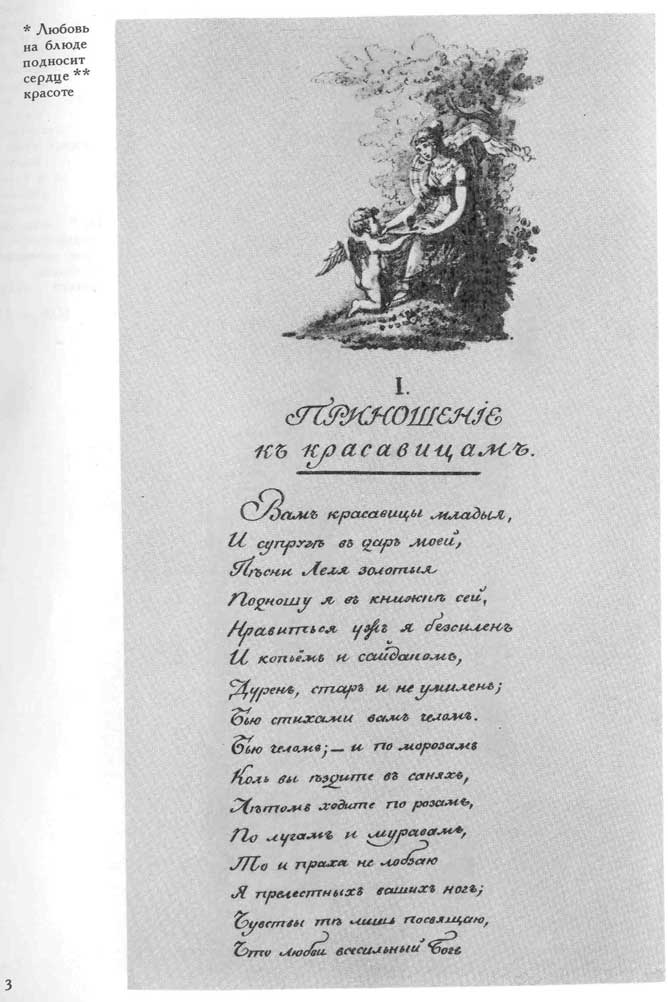 * Любовь
на блюде
подносит
сердце **
красоте
I.
ПРИНОШЕНІЕ
къ красавицамъ.
Вамъ красавицы младыя,
И супругѣ въ даръ моей,
Пѣсни Леля золотыя
Подношу я въ книжкѣ сей,
Нравиться ужъ я безсиленъ
И копьёмъ и сайдакомъ,
Дуренъ, старъ и не умиленъ;
Бью стихами вамъ челомъ.
Бью челомъ; — и по морозамъ
Коль вы ѣздите въ саняхъ,
Лѣтомъ ходите по розамъ,
По лугамъ и муравамъ,
То и праха не лобзаю
Я прелестныхъ вашихъ ногъ;
Чувствы тѣ лишь посвящаю,
Что любви всесильный Богъ
3